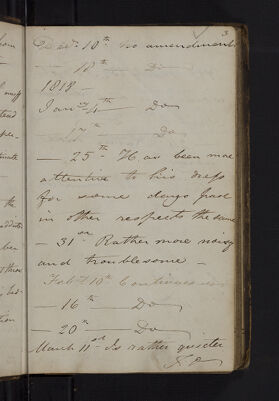 3
Decr. 10th no amendment
— 18th — Do
1818 —
Jany 4th — Do
— 17th — Do
— 25th Has been more
attentive to his dress
for some days past
in other respects the same
— 31st Rather more noisy
and troublesome —
Feby 10th Continues
— 16th — Do
— 20th — Do
March 11th Is rather quieter